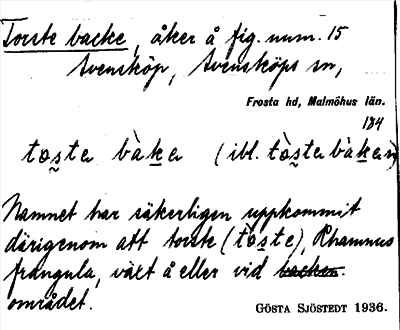 Torste backe, åker å fig. num. 15
Svensköp, Svensköps sn,
Frosta hd, Malmöhus län.
184
to̰ste bàke (ibl. tò̰ste bàken)
Namnet har säkerligen uppkommit
därigenom att torste (tò̰ste), Rhamnus
frangula, växt å eller vid backen.
området.
GÖSTA SJÖSTEDT 1936.